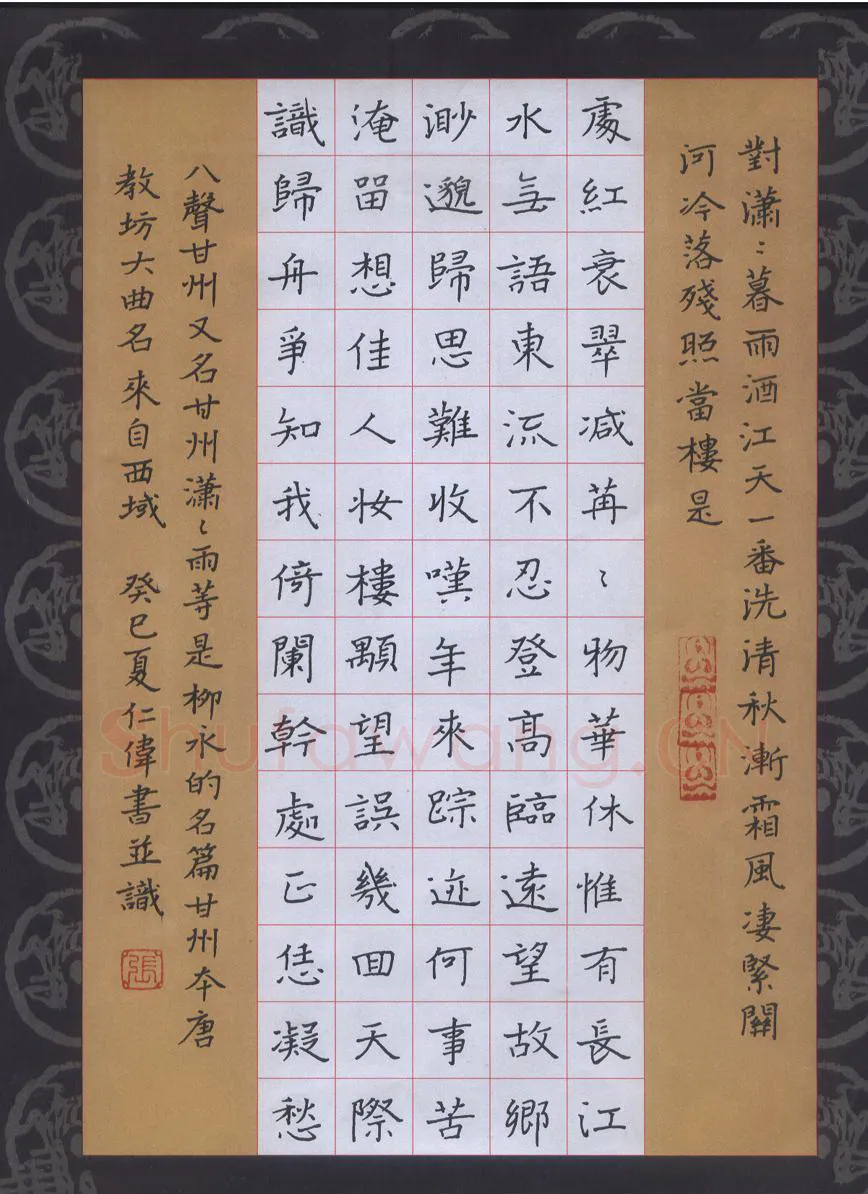 對潇〻暮雨洒江天一番洗清秋漸霜風凄緊關
河冷落殘照當樓是
處紅衰翠减苒〻物華休惟有長江
水無語東流不忍登高臨遠望故鄉
渺邈歸思難收嘆年來踪迹何事苦
淹留想佳人妝樓顒望誤幾回天際
識歸舟爭知我倚闌幹處正恁凝愁
八聲甘州又名甘州潇〻雨等是柳永的名篇甘州本唐
教坊大曲名來自西域 癸巳夏仁偉書並識
張
Shufawang.CN